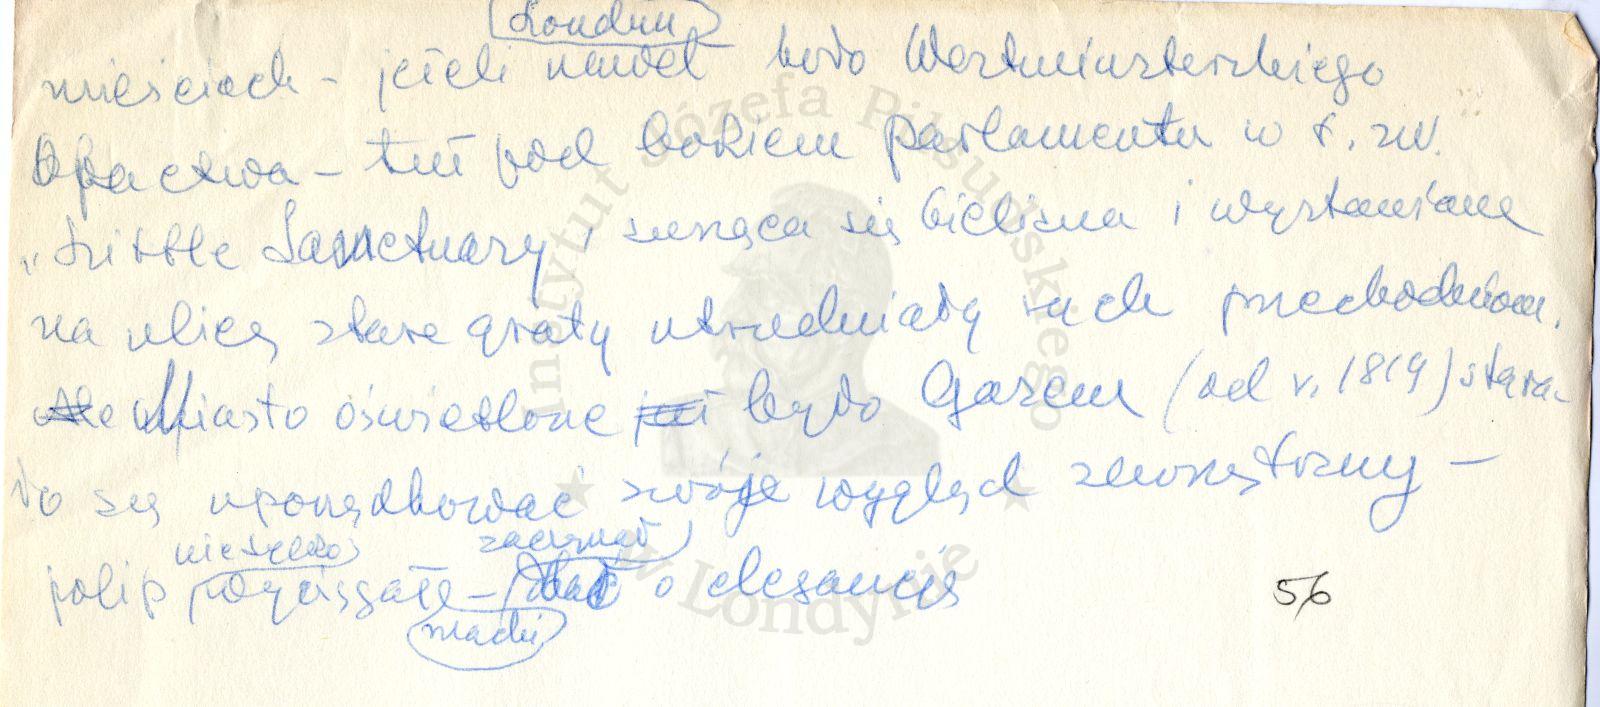 Londyn
mieścioch - jeżeli nawet koło Westminsterskiego
Opactwa - tuż pod bokiem parlamentu w t. zw.
„Little Sanctuary, susząca się bielizna i wystawiane
na ulicę stare graty utrudniały ruch przechodniom.
Ale Miasto oświetlone już było Gazem (od r. 1819) stara-
ło się uporządkować swóje wygląd zewnętrzny -
nieszylko zaczynał
polip - dbać o elegancję
macki
56
Instytut Józefa Piłsudskiego
w Londynie